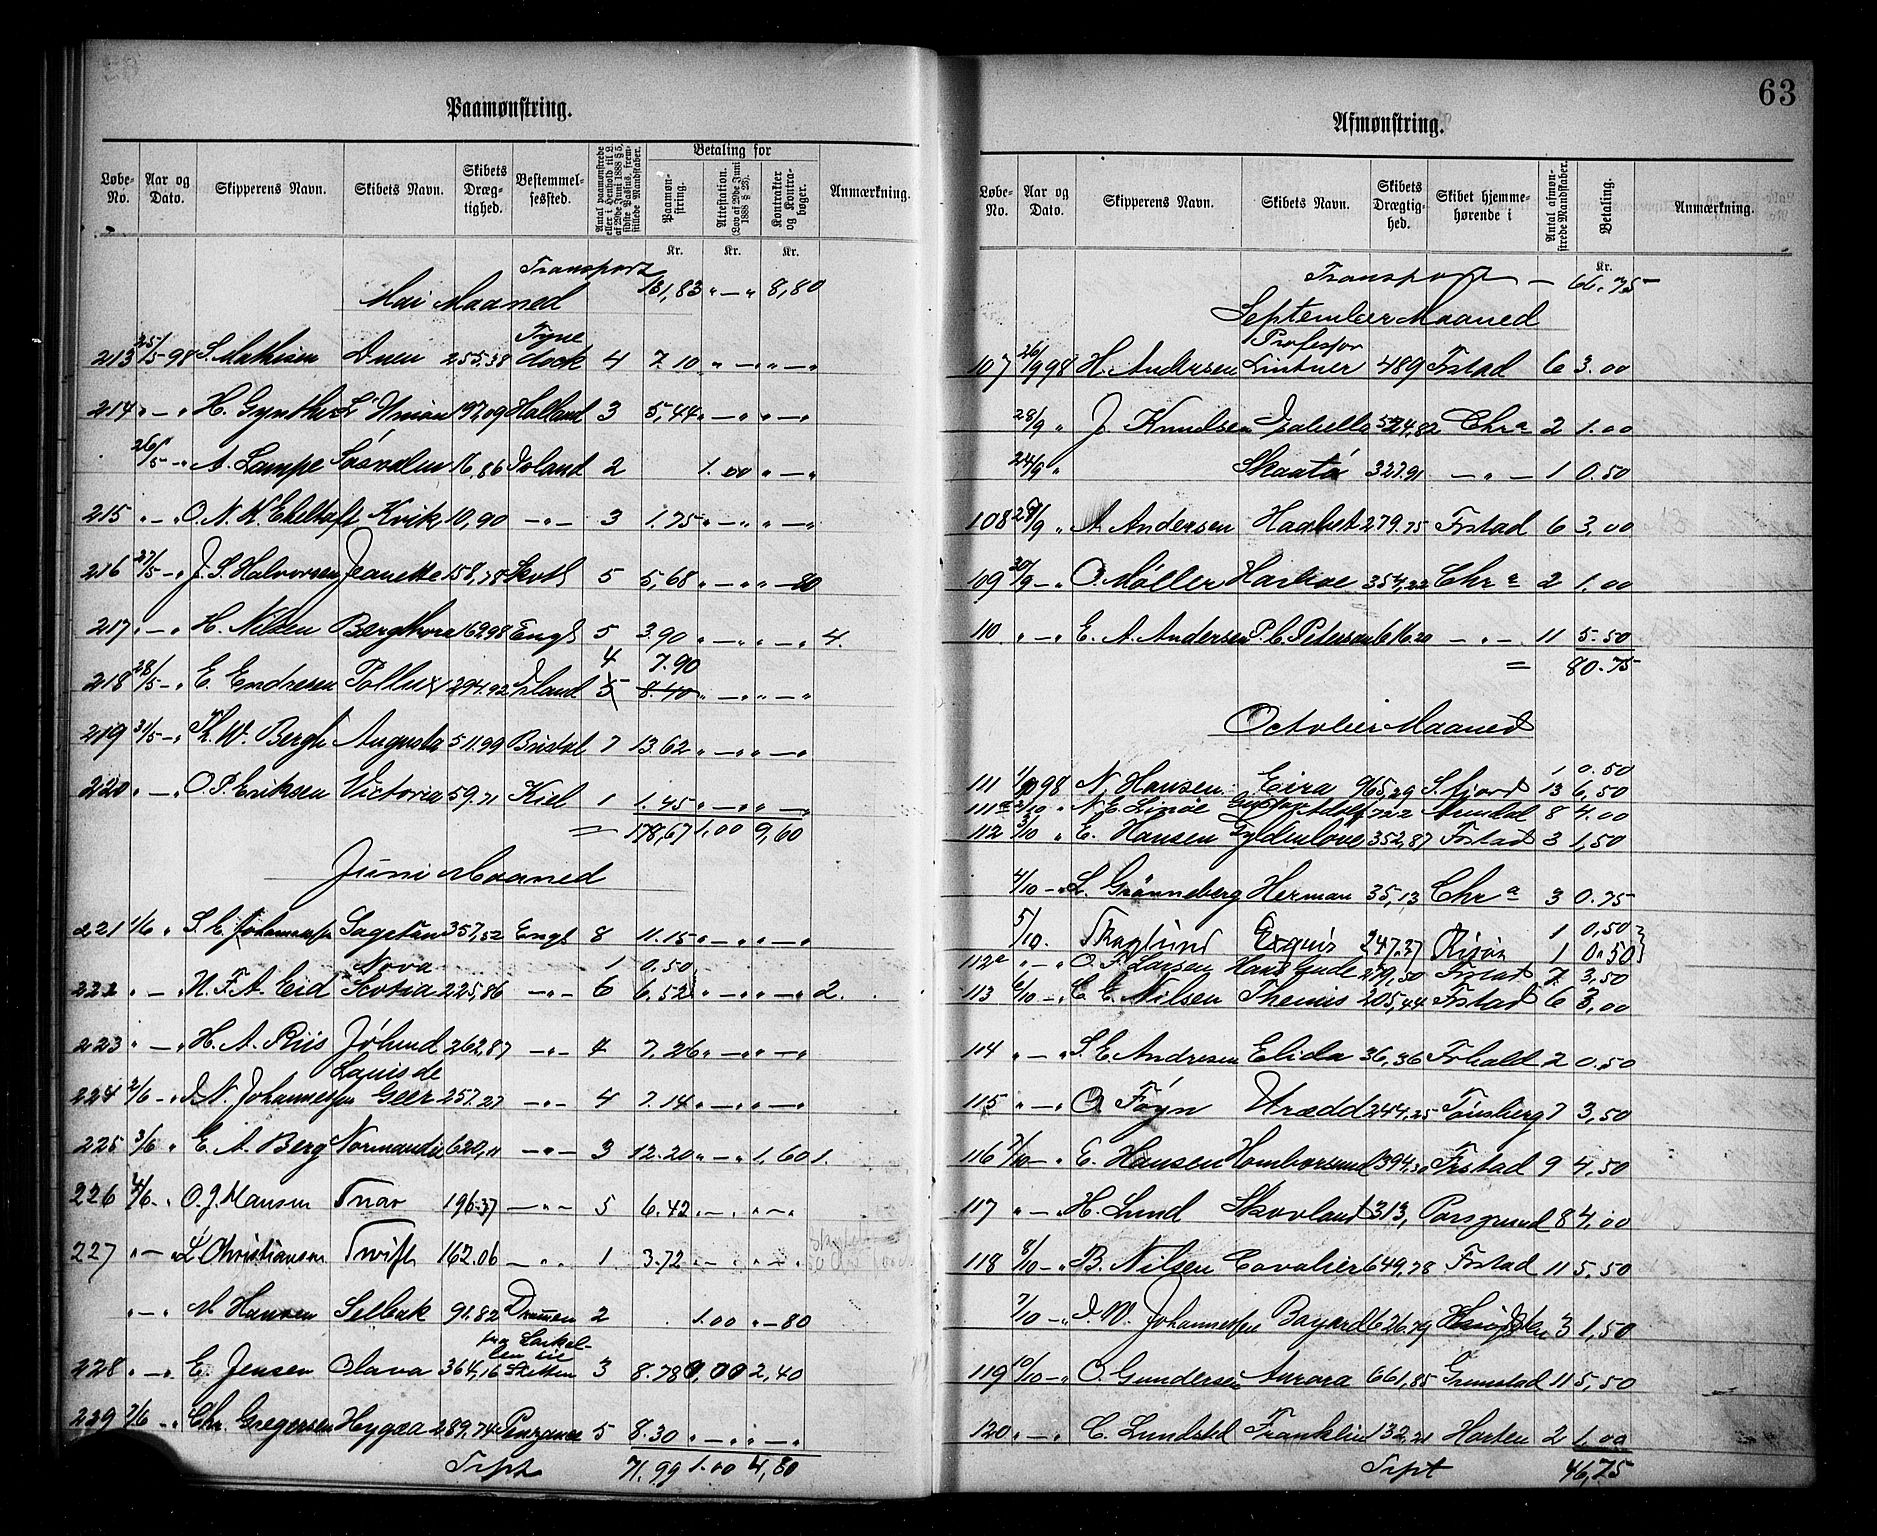 63
Paamønstring.
Løbe-No. Aar og Dato. Skipperens Navn. Skibets Navn. Skibets Dræg-tighed. Bestemmel-sessted. Betaling for Paamøn-string. Attestation. (Lov af 29de Juni 1888 § 25). Kontrakter og Kontra-bøger. Anmærkning.
Kr. Kr. Kr.
Transport 131,83 " — " 8,80
Mai Maaned
213 25/5 98 S. Mathisen Duen 255,38 Tyne dock 4 7.10 " — " " — "
214 " — " H. Gynther 197,09 Halland 3 5,44 " — " " — "
26/5 — " A. Lampe 16,86 2 1.00 " — "
215 " — " O. N. K. Kvik 10,90 — " — 3 1.75 " — " " — "
216 27/5 — " J. S. Halvorsen Jeanette 158,78 Skotl 5 5,68 " — " " — 80
217 " — " H. Nilsen Bergthora 162,98 Engl 5 3.90 " — " " — " 4.
4 7.90
218 28/5 — " E. Endresen Pollux 294.92 Irland 5 8.40 " — " " — "
219 31/5 — " K. W. Bergh Augusta 511.99 Bristol 7 13.62 " — " " — "
220 " — " O. P. Eriksen Victoria 59.71 Kiel 1 1.45 " — " " — "
= 178,67 1.00 9,60
Juni Maaned
221 1/6 " S. E. Johannessen 357,52 Engl 8 11.15 " — " " — "
Nova 1 0.50
222 " — " N. F. A. Eid Scotia 225,86 — " — 6 6.52 " — " " — " 2.
223 " — " H. A. Riis 262,87 — " — 4 7.26 " — " " — "
Louis de
224 2/6 — " N. Johannessen Geer 257.27 — " — 4 7.14 " — " " — "
225 3/6 " E. A. Berg Normandie 620,11 — " — 3 12.20 " — " 1,60 1.
226 4/6 — " O. J. Hansen 196.37 — " — 5 6.42 " — " " — "
227 " — " L. Christiansen Swift 162.06 — " — 1 3.72 " — " " — "
" — " M. Hansen Selbak 91.82 Drammen 2 1.00 " — 80
228 " — " E. Jensen Olava 364,16 fra Larkol-len til Stettin 3 8.78 0,00 2,40
229 7/6 — " Chr. Gregersen Hygæa 289.74 Penzance 5 8.30 " — " " — "
Trpt 71.99 1.00 4,80
Afmønstring.
Løbe-No. Aar og Dato. Skipperens Navn. Skibets Navn. Skibets Drægtig-hed. Skibet hjemme-hørende i Antal afmøn-strede Mandstaber. Betaling. Anmærkning.
Kr.
Transport — 66.75
September Maaned
Professor
107 26/9 98 H. Andersen Lintner 489 Fstad 6 3.00
28/9 " J. Knudsen Isabella 524,82 Chr a 2 1.00
24/9 " Skaatø 327.91 — " — 1 0.50
108 28/9 " A. Andersen Haabet 279.75 Frstad 6 3,00
109 20/9 — " O. Møller 354,22 Chr a 2 1.00
110 " — " E. A. Andersen P. C. Petersen 616.20 — " — 11 5.50
= 80.75
October Maaned
1 0.50
111 1/10 98 N. Hansen Eira 965,29 S.fjord 13 6,50
111a 2/10 " N. E. Linøe Gustav Adolf 722 Arendal 8 4.00
112 3/10 " E. Hansen Gyldenløve 352,87 Frstad 3 1,50
4/10 — " L. Grønneberg Herman 35,13 Chr a 3 0.75
1 0,50
5/10. Esquiz 247.37 Risør 1 0.50
112a " — " O. F. Larsen Hans Gude 279,50 Frstad 7 3,50
113 6/10 — " C. E. Nilsen Themis 205,44 Frstad 6 3,00
114 " — " S. E. Andresen Elida 36,36 Frhald 2 0.50
115 " — " O. Føyn Urædd 244,25 Tønsberg 7 3,50
116 7/10 — " E. Hansen Homborsund 394.30 Frstad 9 4,50
117 " — " H. Lund Skovland 313, Porsgrund 8 4.00
118 8/10 — " B. Nilsen Cavalier 649,78 Frstad 11 5,50
7/10 — " J. W. Johannessen Bayard 626.79 3 1,50
119 10/10 — " O. Gundersen Aurora 661,85 Grimstad 11 5,50
120 " — " C. Lundsted Franklin 132,21 Horten 2 1.00
Trpt 46,75